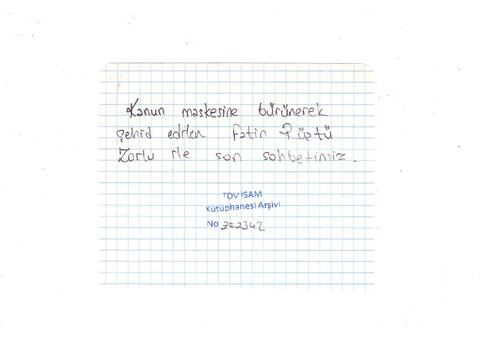 Kanun maskesine bürünerek
şehid edilen Fatin Rüştü
Zorlu ile son sohbetimiz.
TDV İSAM
Kütüphanesi Arşivi
No 352342